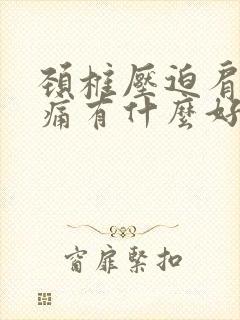 頚椎壓迫肩
痛有什麼好
窗扉緊扣